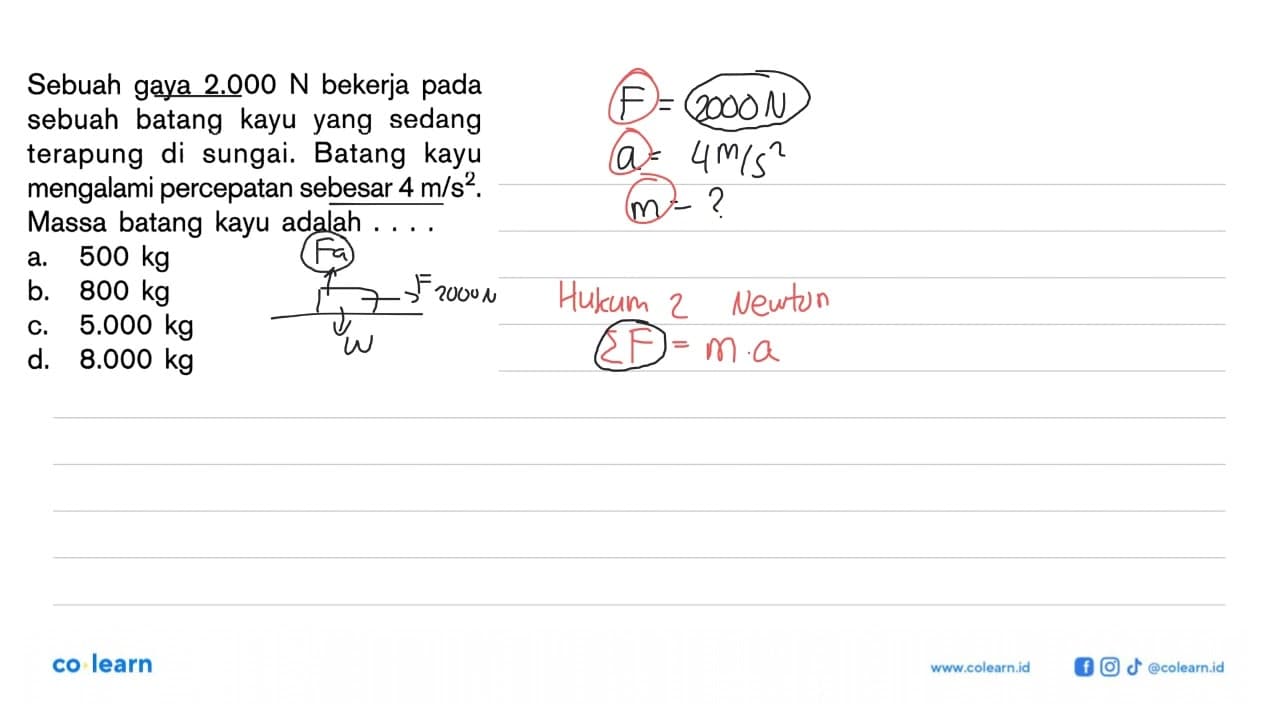 Sebuah gaya 2.000 N bekerja pada
sebuah batang kayu yang sedang
terapung di sungai. Batang kayu
mengalami percepatan sebesar 4 m/s².
Massa batang kayu adalah . . . .
a. 500 kg
b. 800 kg
c. 5.000 kg
d. 8.000 kg
Fa
F 2000 N
W
F = 2000 N
a = 4 M/s²
m = ?
Hukum 2 Newton
ΣF = m.a
co learn
www.colearn.id
@colearn.id